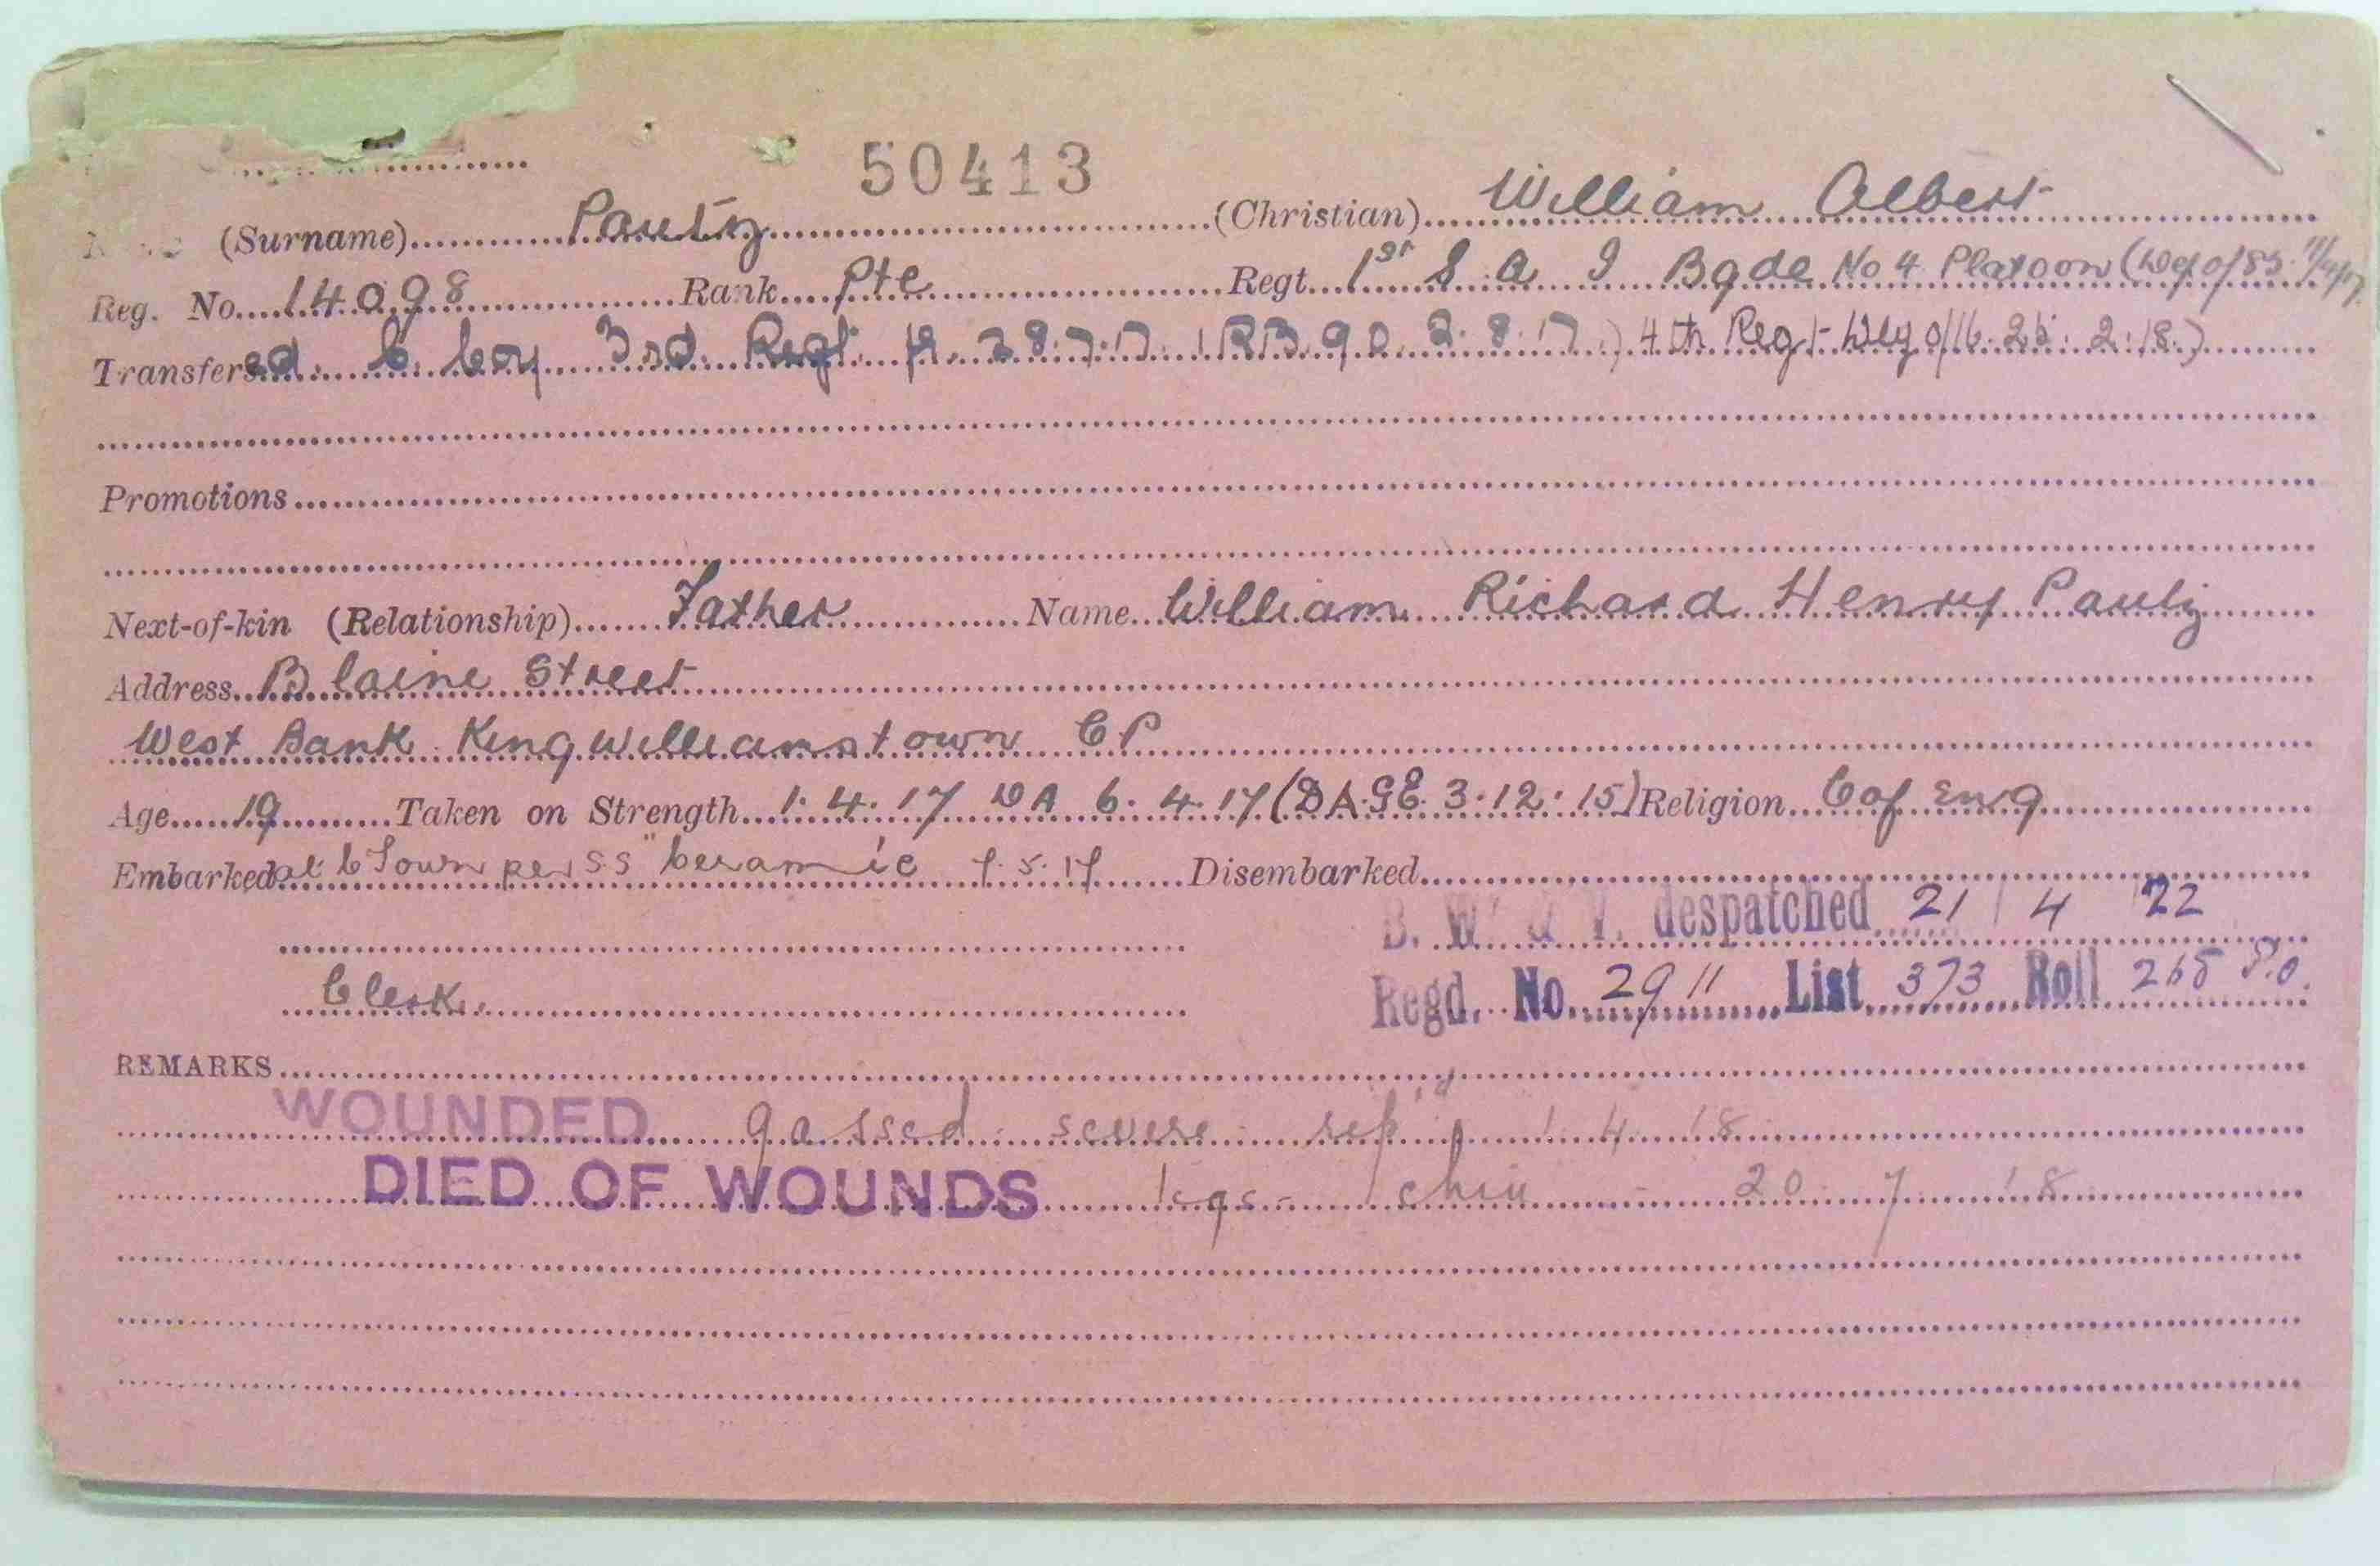 50413
(Surname) Pautz (Christian) William Albert
Reg. No. 14098 Rank Pte Regt. 1st S. A. I Bgde No 4 Platoon (
Transferred. C. Coy 3rd. Regt. 28.7.17. 90 2.8.17.) 4th Regt 25.2.18.)
Promotions
Next-of-kin (Relationship) Father Name William Richard Henry Pautz
Address Blaine Street
West Bank Kingwilliamstown CP
Age 19 Taken on Strength 1.4.17 DA 6.4.17 (DA.GE 3.12.15) Religion C of Eng
Embarked at C Town per SS "Ceramic Disembarked
B. W. & V. despatched 21 4 22
Clerk. Regd. No. 2911 List 373 Roll 265 P.O.
REMARKS
WOUNDED gassed severe rep'd 1 4 18
DIED OF WOUNDS legs - chin - 20 7 18